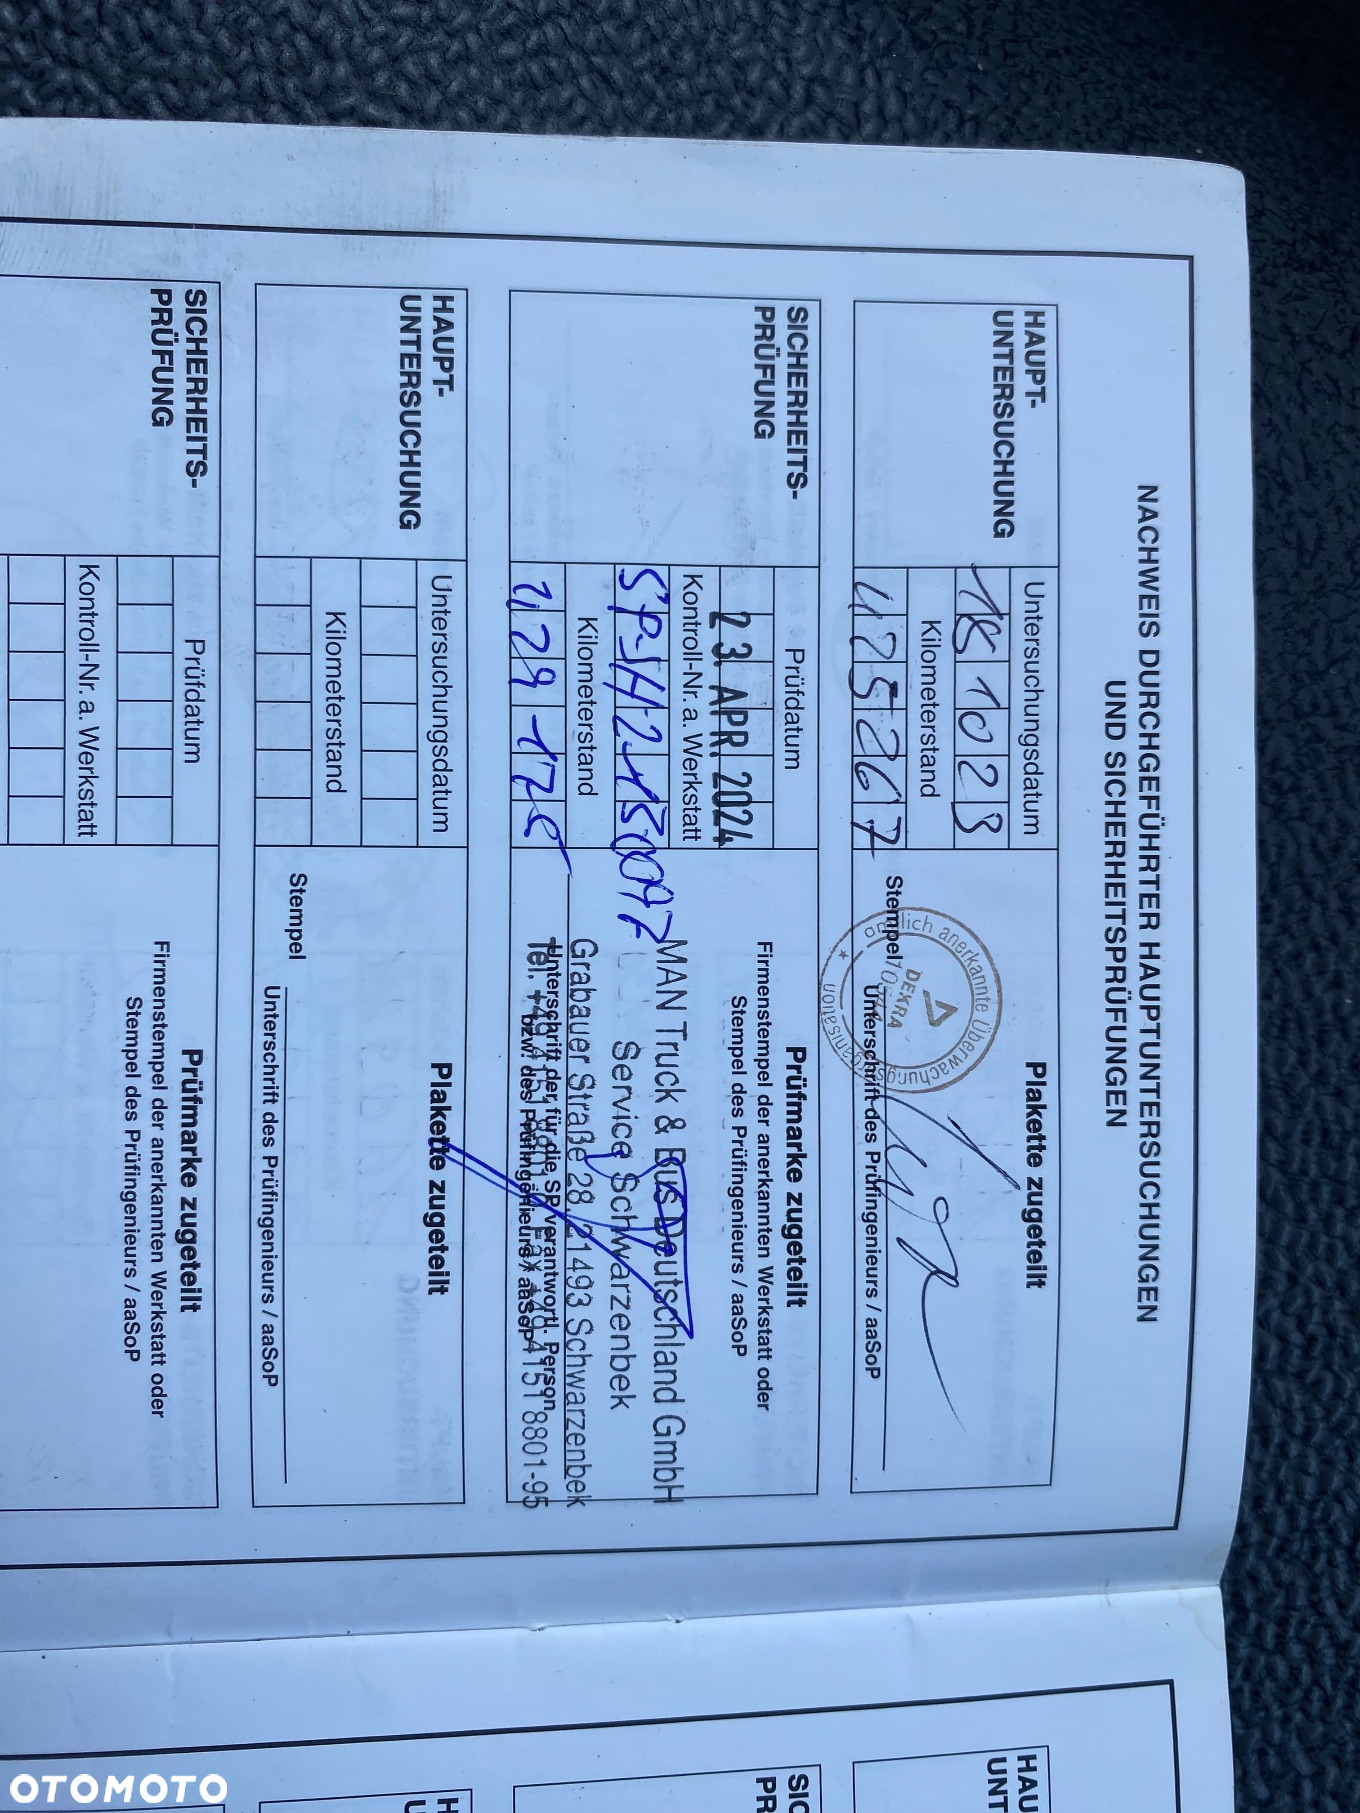 NACHWEIS DURCHGEFÜHRTER HAUPTUNTERSUCHUNGEN
UND SICHERHEITSPRÜFUNGEN
HAUPT-
UNTERSUCHUNG
Untersuchungsdatum
18 10 23
Kilometerstand
425267
Plakette zugeteilt
amtlich anerkannte Überwachungsorganisation
DEKRA
Stempel
Unterschrift des Prüfingenieurs / aaSoP
SICHERHEITS-
PRÜFUNG
Prüfdatum
23. APR. 2024
Kontroll-Nr. a. Werkstatt
SP-SH-2-
Kilometerstand
Prüfmarke zugeteilt
Firmenstempel der anerkannten Werkstatt oder
Stempel des Prüfingenieurs / aaSoP
MAN Truck & Bus Deutschland GmbH
Service Schwarzenbek
Grabauer Straße 28, 21493 Schwarzenbek
Unterschrift der für die SP verantwortl. Person
bzw. des Prüfingenieurs / aaSoP
Tel. +49 4151 8801-0 Fax +49 4151 8801-95
HAUPT-
UNTERSUCHUNG
Untersuchungsdatum
Kilometerstand
Plakette zugeteilt
Stempel
Unterschrift des Prüfingenieurs / aaSoP
SICHERHEITS-
PRÜFUNG
Prüfdatum
Kontroll-Nr. a. Werkstatt
Prüfmarke zugeteilt
Firmenstempel der anerkannten Werkstatt oder
Stempel des Prüfingenieurs / aaSoP
HAU
UNT
SIC
PR
H
U
OTOMOTO